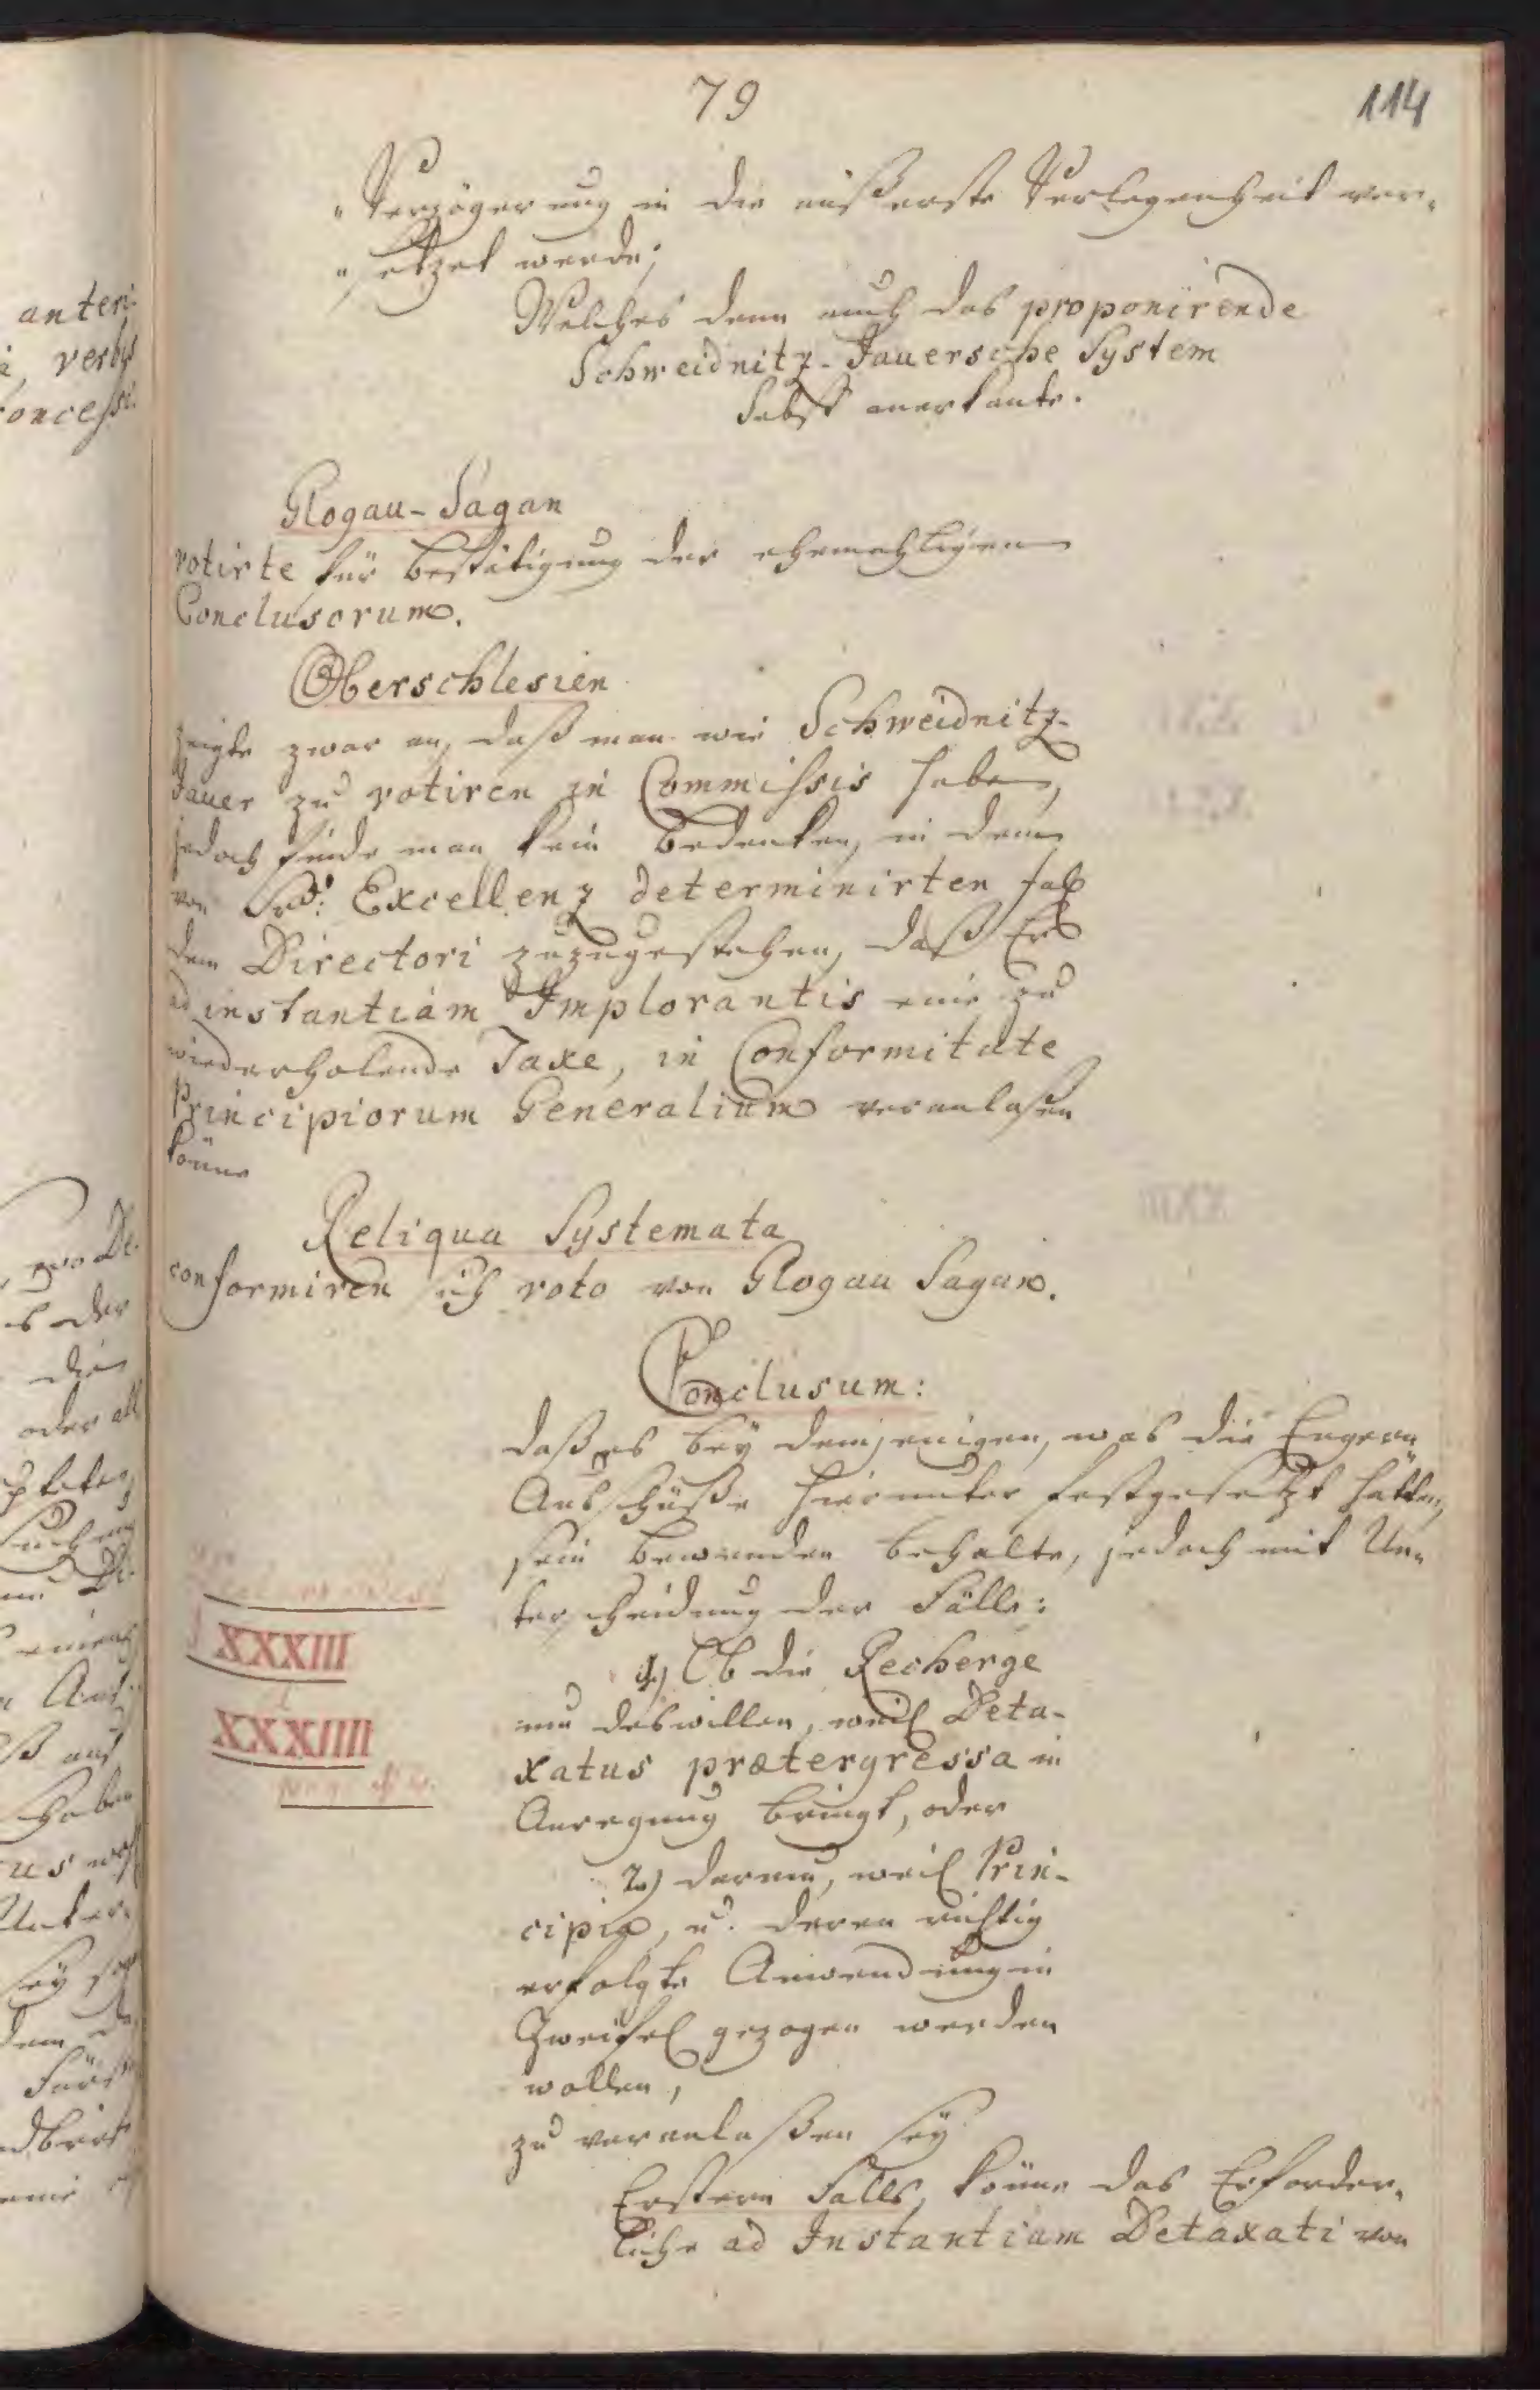 79
114
„Verzögerung in die äußerste Verlegenheit ver„
„setzet werde;
Welches denn auch das proponirende
Schweidnitz-Jauersche System
selbst anerkante.
Glogau-Sagan
votirte für Bestätigung der ehemahligen
Conclusorum.
Oberschlesien
zeigte zwar an, daß man wie Schweidnitz-
Jauer zu votiren in Commissis habe,
jedoch finde man kein Bedenken, in dem
von Sr: Excellenz determinirten Fall
dem Directori zuzugestehen, daß Er
ad instantiam Implorantis eine zu
wiederholende Taxe, in Conformitate
Principiorum Generalium veranlaßen
könne
Reliqua Systemata
conformiren sich voto von Glogau Sagan.
Conclusum:
daß es bey demjenigen, was die Engern
Ausschüße hierunter festgesetzt hätten,
sein Bewenden behalte, jedoch mit Un„
terscheidung der Fälle:
XXXIII
XXXIIII
1.) Ob die Recherge
um deswillen, weil Deta-
xatus prætergressa in
Anregung bringt, oder
2.) darum, weil Prin-
cipia, u. deren richtig
erfolgte Anwendung in
Zweifel gezogen werden
wollen,
zu veranlaßen sey
Erstern Falls, könne das Erforder„
liche ad Instantiam Detaxati von